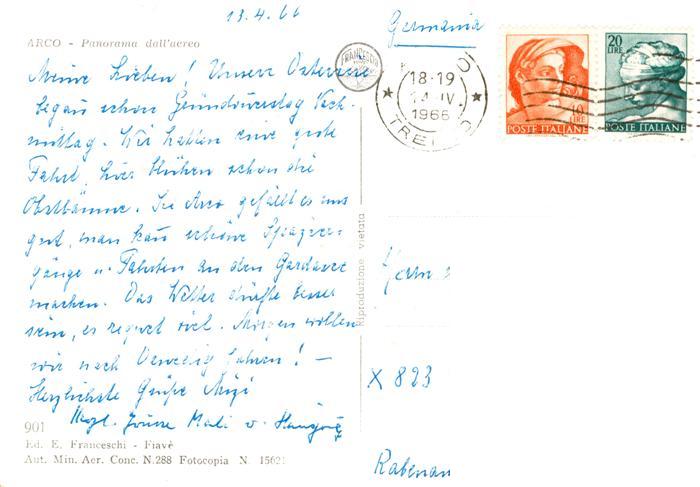 13.4.66
Germania
ARCO - Panorama dall'aereo
Meine Lieben! Unsere Osterreise
begann schon Gründonnerstag Nach-
mittag. Wir hatten eine gute
Fahrt, hier blühen schon die
Obstbäume. In Arco gefällt es uns
gut, man kann schöne Spazier-
gänge u. Fahrten an den Gardasee
machen. Das Wetter dürfte besser
sein, es regnet viel. Morgen wollen
wir nach Venedig fahren! —
Herzlichste Grüße Mizi
Herzl. Grüsse Mali
901
Ed. E. Franceschi - Fiavè
Aut. Min. Aer. Conc. N.288 Fotocopia N. 15621
Riproduzione vietata
FRANCESCHI
18-19
IV
1966
POSTE ITALIANE
40 LIRE
20 LIRE
POSTE ITALIANE
X 823
Rabenau